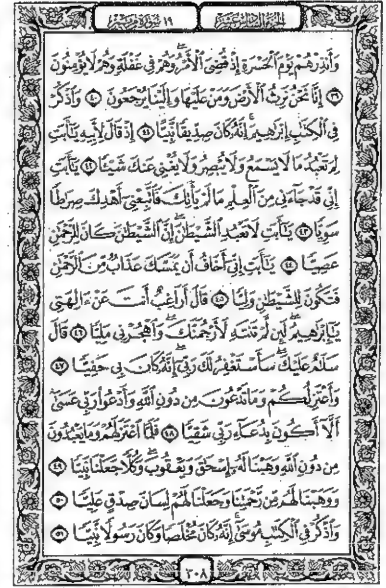 الجزء السادس عشر ١٩ سورة مريم
وَأَنذِرْهُمْ يَوْمَ ٱلْحَسْرَةِ إِذْ قُضِىَ ٱلْأَمْرُ وَهُمْ فِى غَفْلَةٍ وَهُمْ لَا يُؤْمِنُونَ
٣٩ إِنَّا نَحْنُ نَرِثُ ٱلْأَرْضَ وَمَنْ عَلَيْهَا وَإِلَيْنَا يُرْجَعُونَ ٤٠ وَٱذْكُرْ
فِى ٱلْكِتَٰبِ إِبْرَٰهِيمَ إِنَّهُۥ كَانَ صِدِّيقًا نَّبِيًّا ٤١ إِذْ قَالَ لِأَبِيهِ يَٰٓأَبَتِ
لِمَ تَعْبُدُ مَا لَا يَسْمَعُ وَلَا يُبْصِرُ وَلَا يُغْنِى عَنكَ شَيْـًٔا ٤٢ يَٰٓأَبَتِ
إِنِّى قَدْ جَآءَنِى مِنَ ٱلْعِلْمِ مَا لَمْ يَأْتِكَ فَٱتَّبِعْنِىٓ أَهْدِكَ صِرَٰطًا
سَوِيًّا ٤٣ يَٰٓأَبَتِ لَا تَعْبُدِ ٱلشَّيْطَٰنَ إِنَّ ٱلشَّيْطَٰنَ كَانَ لِلرَّحْمَٰنِ
عَصِيًّا ٤٤ يَٰٓأَبَتِ إِنِّىٓ أَخَافُ أَن يَمَسَّكَ عَذَابٌ مِّنَ ٱلرَّحْمَٰنِ
فَتَكُونَ لِلشَّيْطَٰنِ وَلِيًّا ٤٥ قَالَ أَرَاغِبٌ أَنتَ عَنْ ءَالِهَتِى
يَٰٓإِبْرَٰهِيمُ لَئِن لَّمْ تَنتَهِ لَأَرْجُمَنَّكَ وَٱهْجُرْنِى مَلِيًّا ٤٦ قَالَ
سَلَٰمٌ عَلَيْكَ سَأَسْتَغْفِرُ لَكَ رَبِّىٓ إِنَّهُۥ كَانَ بِى حَفِيًّا ٤٧
وَأَعْتَزِلُكُمْ وَمَا تَدْعُونَ مِن دُونِ ٱللَّهِ وَأَدْعُوا۟ رَبِّى عَسَىٰٓ
أَلَّآ أَكُونَ بِدُعَآءِ رَبِّى شَقِيًّا ٤٨ فَلَمَّا ٱعْتَزَلَهُمْ وَمَا يَعْبُدُونَ
مِن دُونِ ٱللَّهِ وَهَبْنَا لَهُۥٓ إِسْحَٰقَ وَيَعْقُوبَ وَكُلًّا جَعَلْنَا نَبِيًّا ٤٩
وَوَهَبْنَا لَهُم مِّن رَّحْمَتِنَا وَجَعَلْنَا لَهُمْ لِسَانَ صِدْقٍ عَلِيًّا ٥٠
وَٱذْكُرْ فِى ٱلْكِتَٰبِ مُوسَىٰٓ إِنَّهُۥ كَانَ مُخْلَصًا وَكَانَ رَسُولًا نَّبِيًّا ٥١
٣٠٨